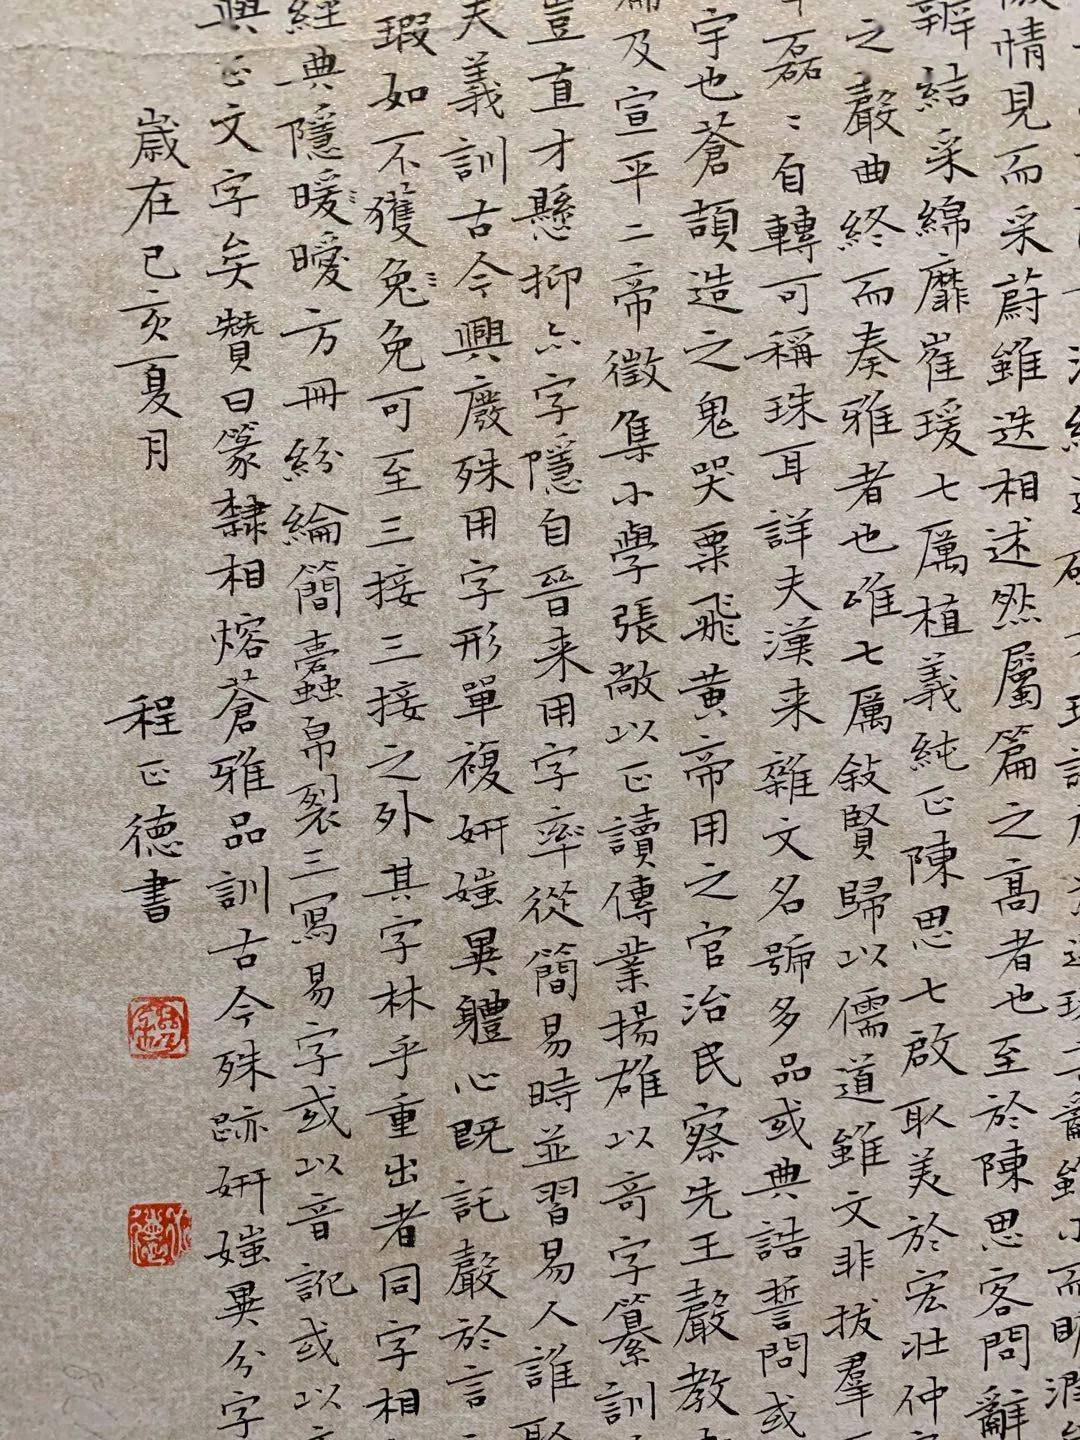 情見而采蔚雖迭相述然屬篇之高者也至於陳思客問辭
辨結采綿靡崔瑗七厲植義純正陳思七啟取美於宏壯仲
之聲曲終而奏雅者也唯七厲敘賢歸以儒道雖文非拔羣
磊〻自轉可稱珠耳詳夫漢来雜文名號多品或典誥誓問或
宇也蒼頡造之鬼哭粟飛黄帝用之官治民察先王聲教
篇及宣平二帝徵集小學張敞以正讀傳業揚雄以奇字纂訓
豈直才懸抑亦字隱自晉来用字率從簡易時並習易人誰
夫義訓古今興廢殊用字形單複妍媸異體心既託聲於言
瑕如不獲兔〻免可至三接三接之外其字林乎重出者同字相
經典隱暖〻曖方冊紛綸簡蠹帛裂三寫易字或以音訛或以
興正文字矣贊曰篆隸相熔蒼雅品訓古今殊跡妍媸異分字
歲在己亥夏月 程正德書